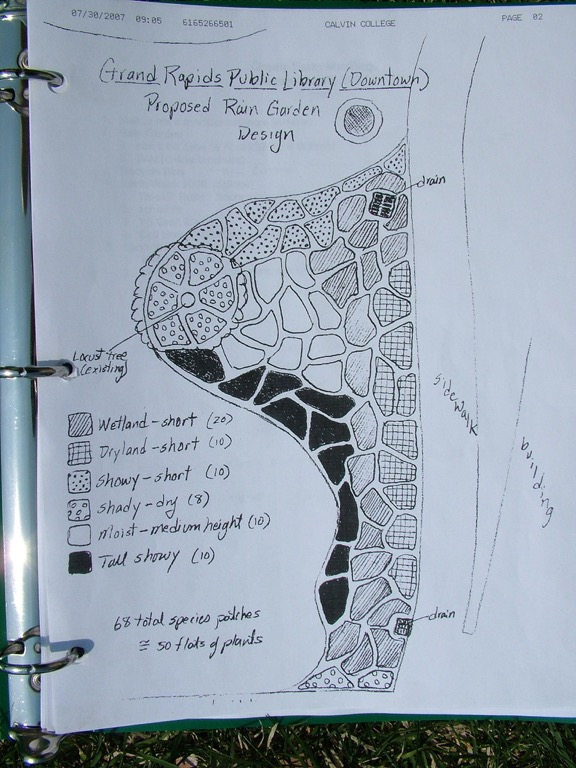 07/30/2007 09:05 6165266501 CALVIN COLLEGE PAGE 02
Grand Rapids Public Library (Downtown)
Proposed Rain Garden
Design
drain
Locust tree
(existing)
sidewalk
building
Wetland-short (20)
Dryland-short (10)
Showy-short (10)
shady-dry (8)
moist-medium height (10)
Tall showy (10)
68 total species patches
≅ 50 flats of plants
drain